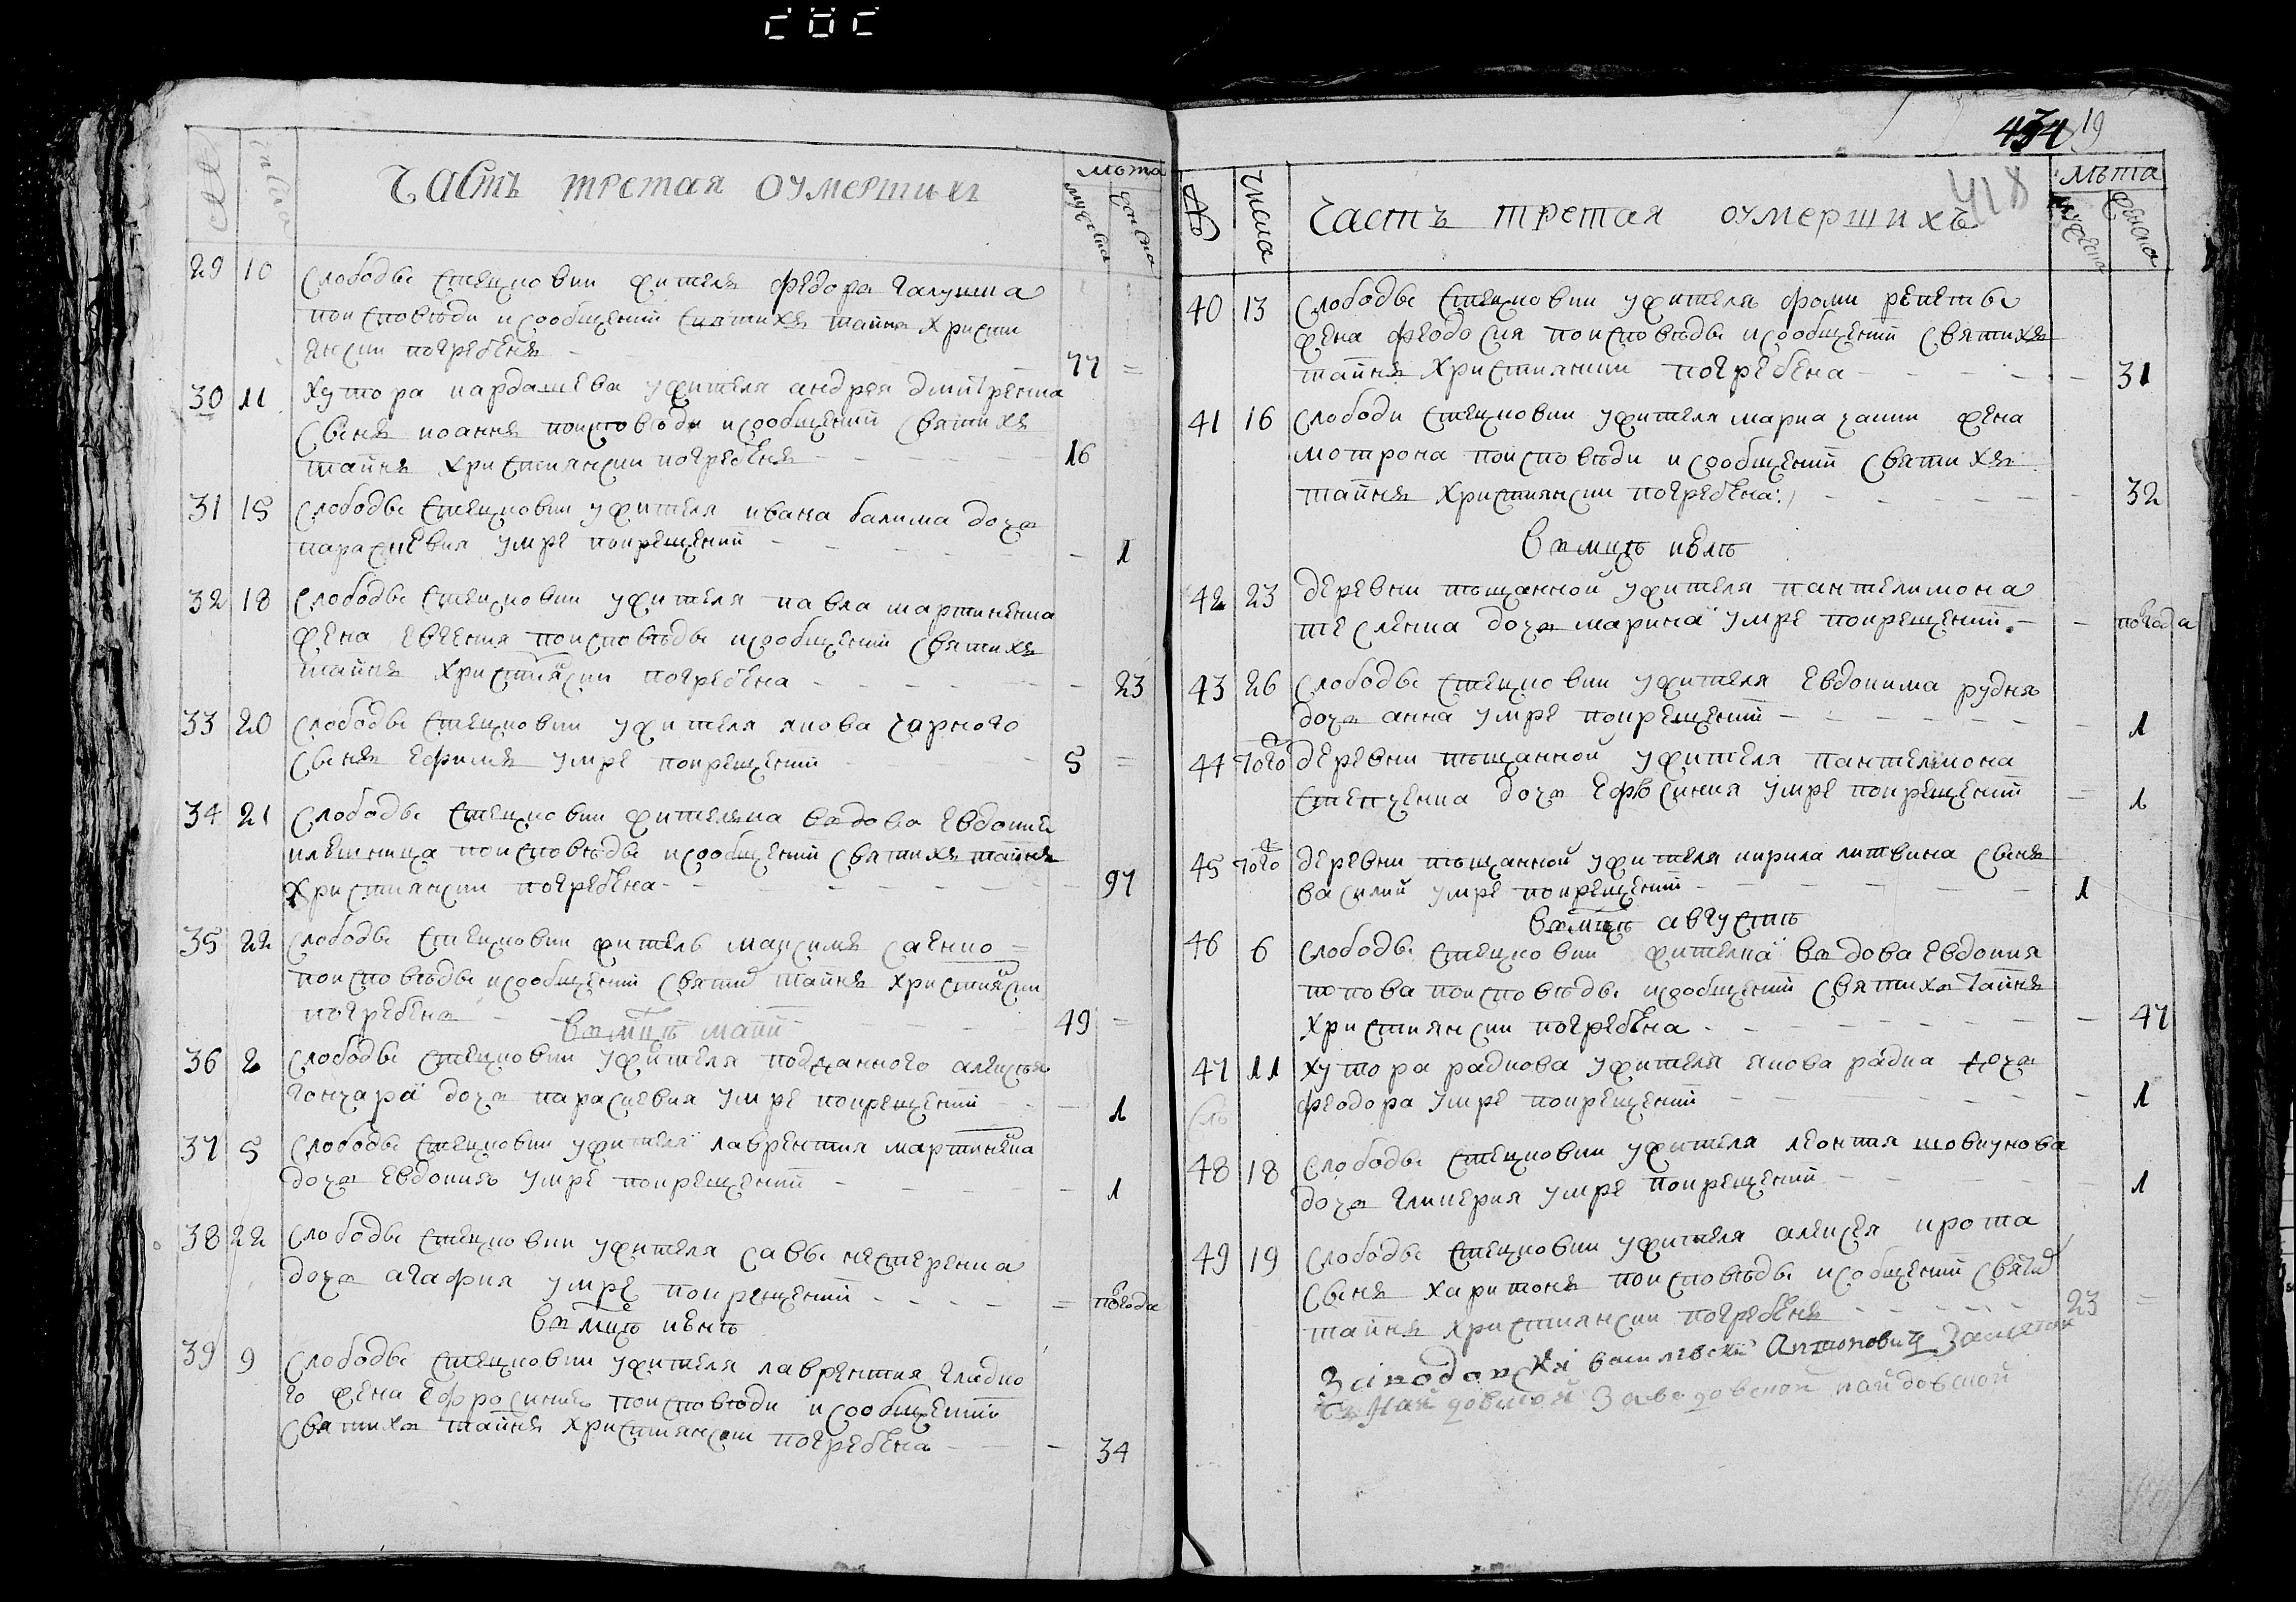 Часть третая оумершихъ
лѣта
29 10 Слободы Стецковки житель федоръ галушка
по исповѣди и сообщеній святихъ тайнъ Христи
янски погребенъ 77 =
30 11 Хутора кардашева жителя андрея дмитренка
сынъ иоаннъ по исповѣди и сообщеній святихъ
тайнъ Християнски погребенъ 16
31 15 Слободы Стецковки жителя ивана балика дочъ
параскевия умре по крещеній 1
32 18 Слободы Стецковки жителя павла мартиненка
жена евгения по исповѣды и сообщеній святихъ
тайнъ Християнски погребена 23
33 20 Слободы Стецковки жителя якова чарного
сынъ ефимъ умре по крещеній 5 =
34 21 Слободы Стецковки жителка вдова евдокия
по исповѣды и сообщеній святихъ тайнъ
Християнски погребена 97
35 22 Слободы Стецковки житель максимъ саенко
по исповѣды и сообщеній святих тайнъ Християнски
погребенъ 49 =
въ мцѣ маии
36 2 Слободы Стецковки жителя подданного алексѣя
гончара дочъ параскевия умре по крещеній 1
37 5 Слободы Стецковки жителя лаврентия мартиненка
дочъ евдокия умре по крещеній 1
38 22 Слободы Стецковки жителя савы нестеренка
дочъ агафия умре по крещеній = полгода
въ мцѣ июнѣ
39 9 Слободы Стецковки жителя лаврентия гладко
го жена ефросиния по исповѣди и сообщеній
святихъ тайнъ Християнски погребена 34
434 19
418
№ числа Часть третая оумершихъ лѣта
мужеска женска
40 13 Слободы Стецковки жителя фоми репеты
жена феодосия по исповѣды и сообщеній святихъ
тайнъ Християнски погребена 31
41 16 Слободи Стецковки жителя марка жена
мотрона по исповѣди и сообщеній святихъ
тайнъ Християнски погребена 32
въ мцѣ июлѣ
42 23 деревни пѣщанной жителя пантелимона
тесленка дочъ марина умре по крещеній полгода
43 26 Слободы Стецковки жителя евдокима рудня
дочъ анна умре по крещеній 1
44 того деревни пѣщанной жителя пантелимона
степченка дочъ ефросиния умре по крещеній = 1
45 того деревни пѣщанной жителя кирила литвина сынъ
василий умре по крещеній 1
въ мцѣ августѣ
46 6 Слободы Стецковки жителка вдова евдокия
попова по исповѣды и сообщеній святихъ тайнъ
Християнски погребена 47
47 11 хутора радкова жителя якова радка дочъ
феодора умре по крещеній 1
48 18 Слободы Стецковки жителя леонтия шовкунова
дочъ гликерия умре по крещеній 1
49 19 Слободы Стецковки жителя алексея крота
сынъ харитонъ по исповѣды и сообщеній святих
тайнъ Християнски погребенъ 23 =
Антонович